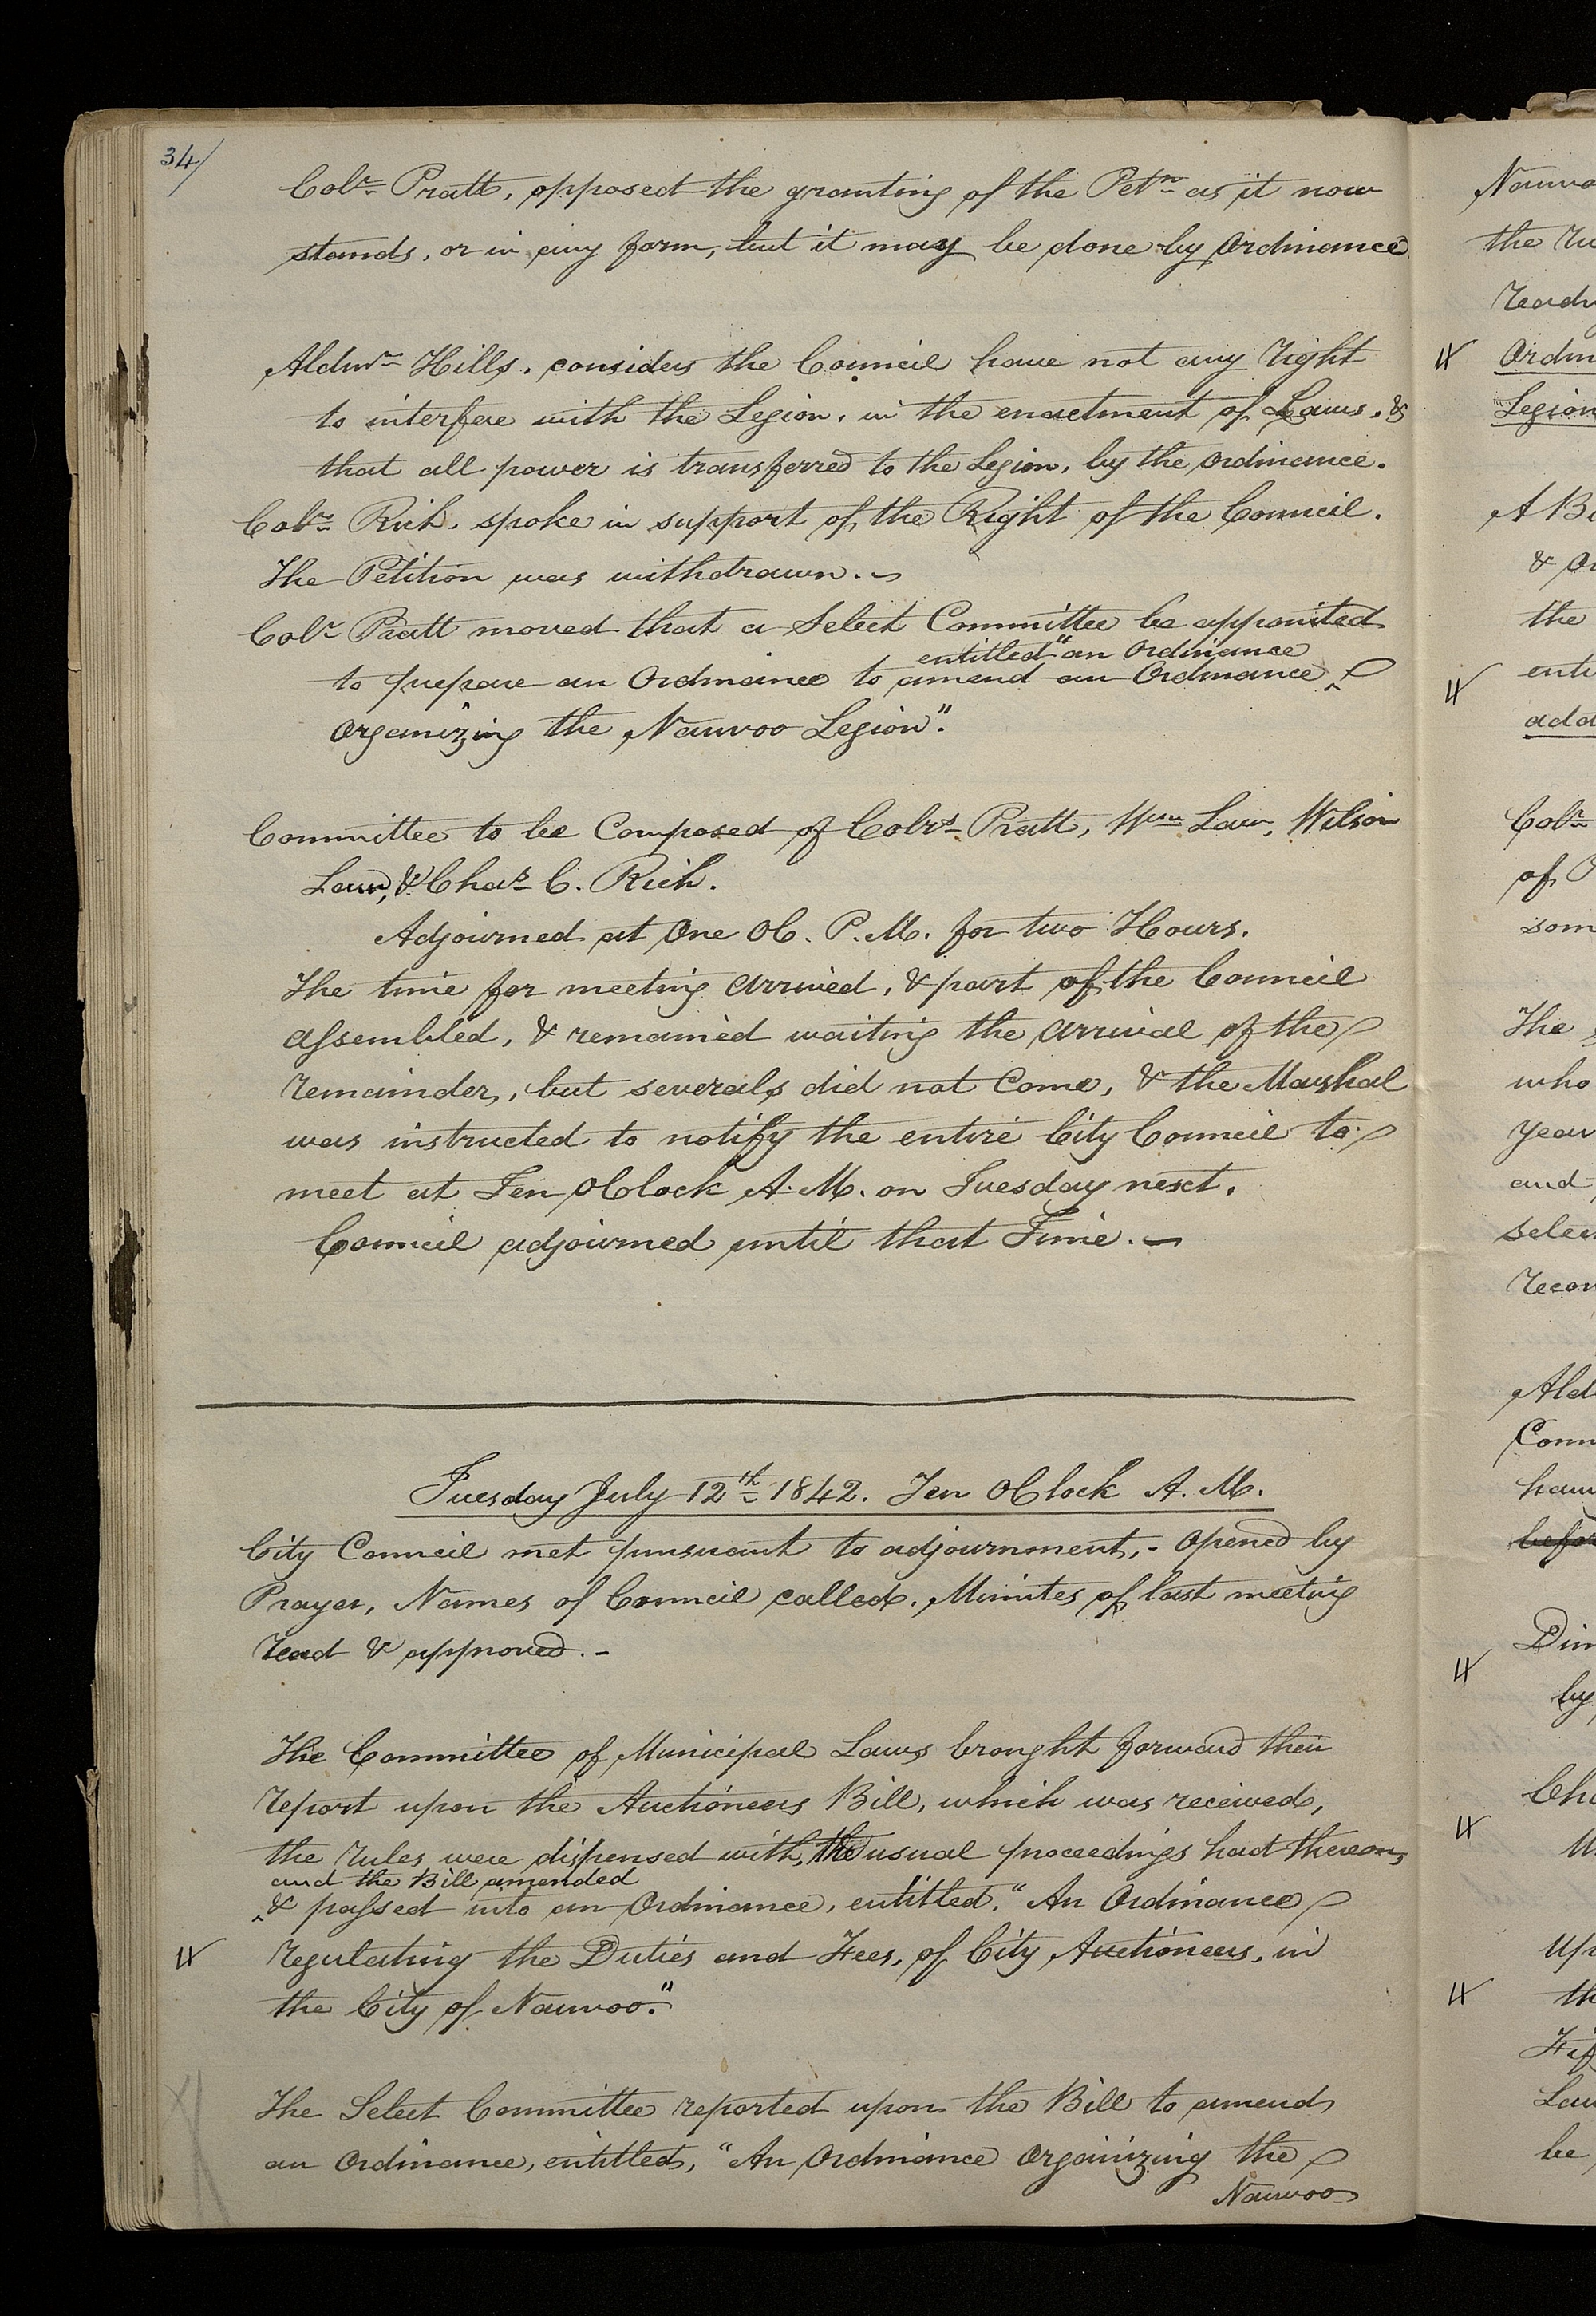 34/
Colr. Pratt, opposed the granting of the Petn. as it now
stands, or in any form, but it may be done by Ordinance
Aldmn. Hills. considers the Council have not any right
to interfere with the Legion, in the enactment of Laws, &
that all power is transferred to the Legion, by the Ordinance.
Colr. Rich. spoke in support of the Right of the Council.
The Petition was withdrawn.
Colr. Pratt moved that a Select Committee be appointed
entitled "an Ordinance
to prepare an Ordinance to amend an Ordinance ^
Organizing the Nauvoo Legion".
Committee to be Composed of Colrs. Pratt, Wm. Law, Wilson
Law, & Chas. C. Rich.
Adjourned at One OC. P.M. for two Hours.
The time for meeting arrived, & part of the Council
assembled, & remained waiting the arrival of the
remainder, but severals did not Come, & the Marshal
was instructed to notify the entire City Council to
meet at Ten OClock A.M. on Tuesday next.
Council adjourned until that Time.
Tuesday July 12th. 1842. Ten OClock A.M.
City Council met pursuant to adjournment,- Opened by
Prayer, Names of Council called. Minutes of last meeting
read & approved.-
The Committee of Municipal Laws brought forward their
report upon the Auctioneers Bill, which was received,
the rules were dispensed with, the usual proceedings had thereon,
and the Bill amended
^& passed into an Ordinance, entitled, "An Ordinance
regulating the Duties and Fees, of City Auctioneers, in
the City of Nauvoo."
The Select Committee reported upon the Bill to amend
an Ordinance, entitled, "An Ordinance Organizing the
Nauvoo
Nauvo
the Ru
Readi
Ordin
Legion
A Bi
& Or
the
enti
add
Colr.
of P
som
The
who
year
and
selec
recom
Ald
Com
hav
befor
Dim
by
Cha
Up
th
Fif
Law
be